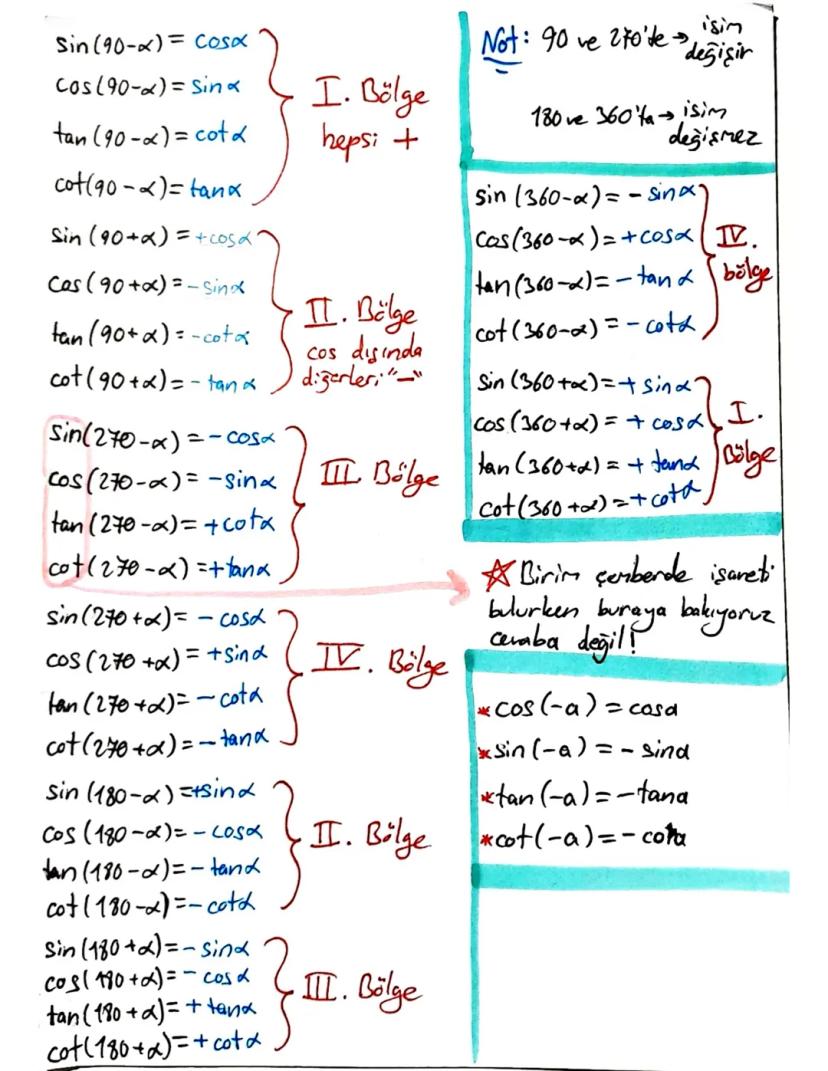 sin(90-α) = cosα
cos(90-α) = sinα
tan(90-α) = cotα
cot(90-α) = tanα
I. Bölge
hepsi +
sin(90+α) = +cosα
cos(90+α) = -sinα
tan(90+α) = -cotα
cot(90+α) = -tanα
II. Bölge
cos dışında
diğerleri "-"
sin(270-α) = -cosα
cos(270-α) = -sinα
tan(270-α) = +cotα
cot(270-α) = +tanα
III. Bölge
sin(270+α) = -cosα
cos(270+α) = +sinα
tan(270+α) = -cotα
cot(270+α) = -tanα
IV. Bölge
sin(180-α) = +sinα
cos(180-α) = -cosα
tan(180-α) = -tanα
cot(180-α) = -cotα
II. Bölge
sin(180+α) = -sinα
cos(180+α) = -cosα
tan(180+α) = +tanα
cot(180+α) = +cotα
III. Bölge
Not: 90 ve 270'te → isim
değişir
180 ve 360'ta → isim
değişmez
sin(360-α) = -sinα
cos(360-α) = +cosα
tan(360-α) = -tanα
cot(360-α) = -cotα
IV.
bölge
sin(360+α) = +sinα
cos(360+α) = +cosα
tan(360+α) = +tanα
cot(360+α) = +cotα
I.
Bölge
☆ Birim çemberde işareti
bulurken buraya bakıyoruz
cevaba değil!
*cos(-a) = cosa
*sin(-a) = -sina
*tan(-a) = -tana
*cot(-a) = -cota